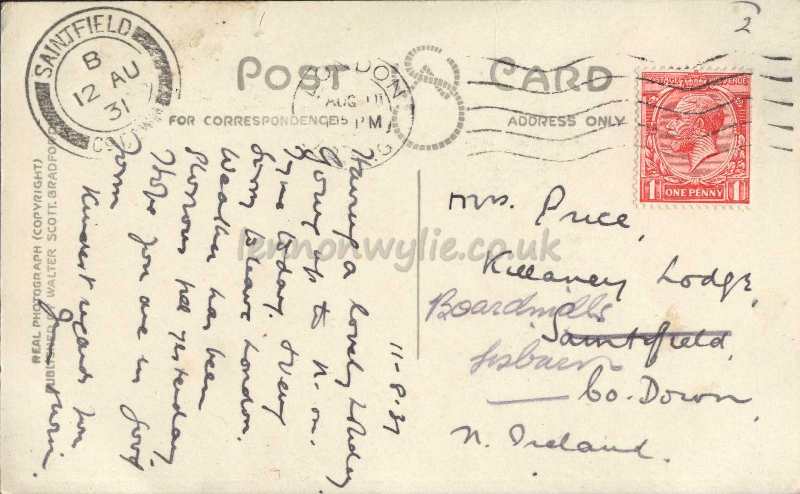 2
SAINTFIELD
B
12 AU
31
CO. DOWN
LONDON
AUG 11
PM
POST CARD
FOR CORRESPONDENCE
ADDRESS ONLY
POSTAGE REVENUE
1 ONE PENNY 1
11-8-31
Having a lovely holiday
Going up to N. on
Tyne today. Very
sorry to leave London.
Weather has been
glorious till yesterday.
Hope you are in good
form
Kindest regards from
Mrs. Price,
Killaney Lodge,
Boardmills
Saintfield,
Lisburn
Co. Down,
N. Ireland.
REAL PHOTOGRAPH (COPYRIGHT)
PUBLISHED BY WALTER SCOTT, BRADFORD
lennonwylie.co.uk